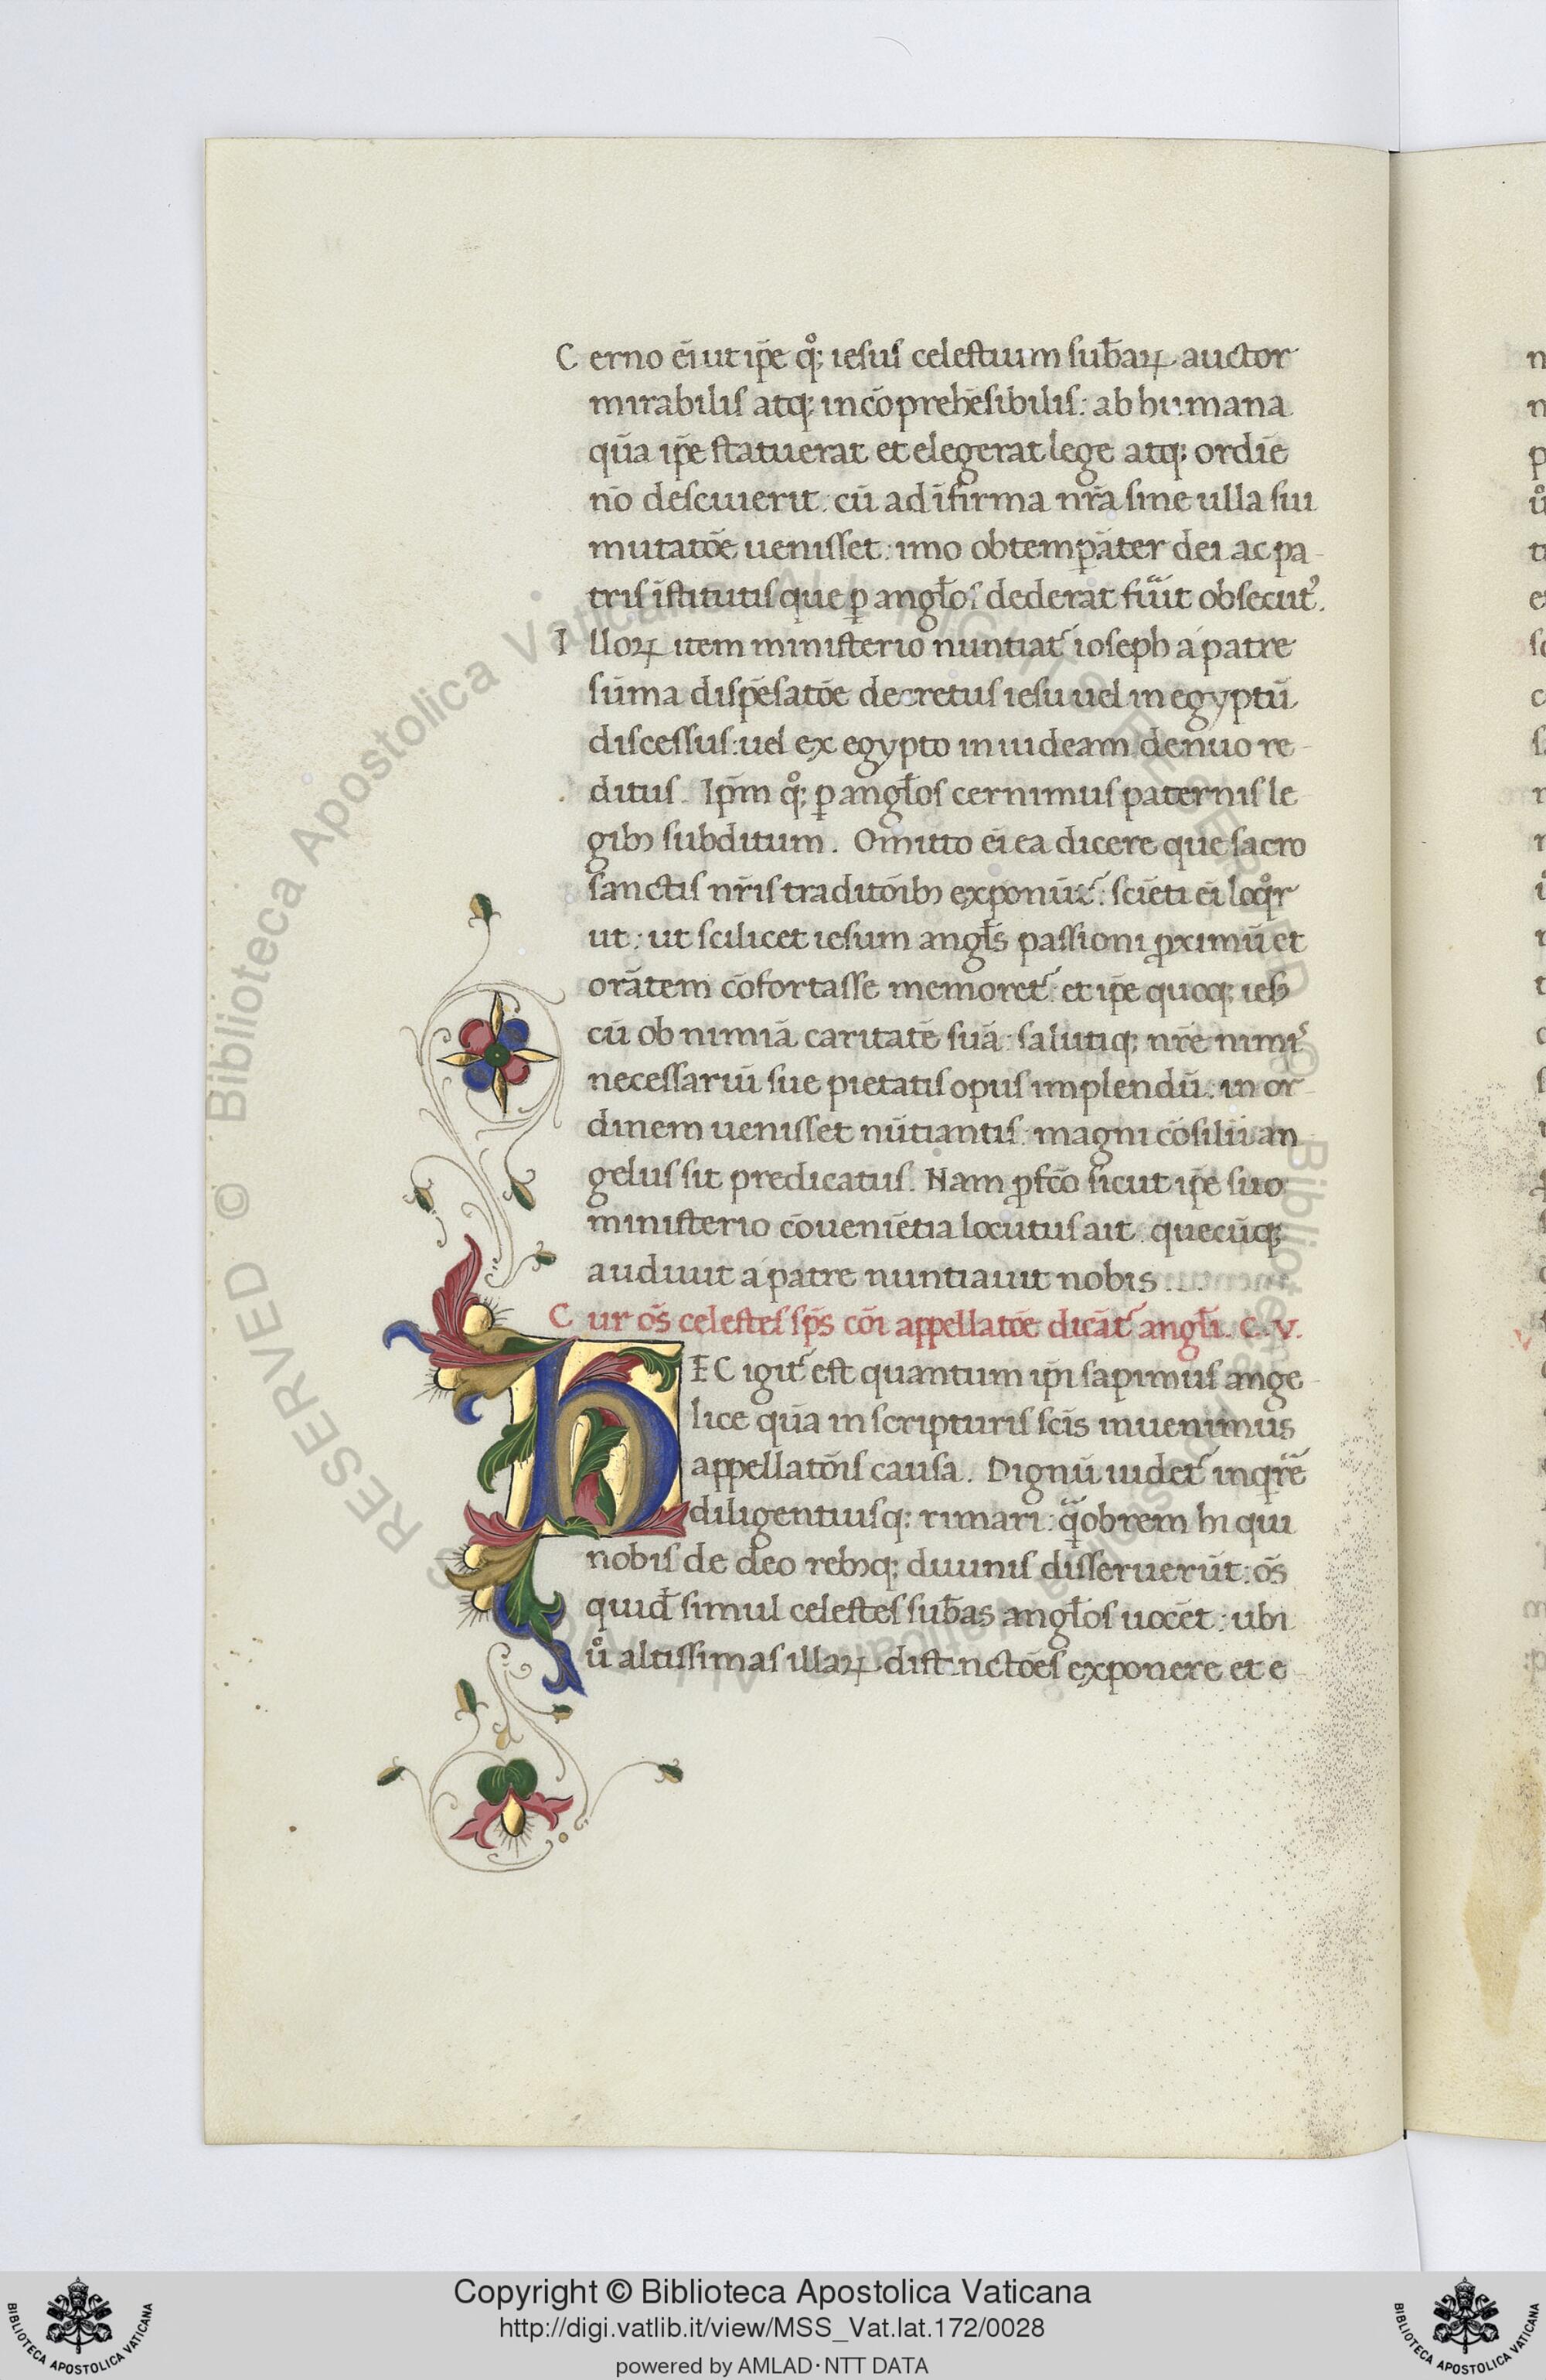 C erno ei̅ ut ip̅e qͦ; iesus celestium sub̅aꝝ auctor
mirabilis atq; inco̅prehe̅sibilis: ab humana
qua̅ ip̅e statuerat et elegerat lege atq; ordi̅e
no̅ desciuerit. cu̅ ad i̅firma nr̅a sine ulla sui
mutato̅e uenisset: imo obtemꝑa̅ter dei ac pa-
tris i̅stitutis que ꝑ angl̅os dederat fu̅it obsecut᾽.
I lloꝝ item ministerio nuntiat᾽ ioseph a patre
su̅ma dispe̅sato̅e decretus iesu uel in egyptu̅
discessus: uel ex egypto in iudeam denuo re-
ditus. Ip̅m qͦ; ꝑ angl̅os cernimus paternis le
gibꝫ subditum. Omitto ei̅ ea dicere que sacro
sanctis nr̅is tradito̅ibꝫ exponu̅t᾽: scie̅ti ei̅ loqͦr
ut: ut scilicet iesum angl̅s passioni ꝓximu̅ et
ora̅tem co̅fortasse memoret᾽: et ip̅e quoq; ieh
cu̅ ob nimia̅ caritate̅ sua̅: salutiq; nr̅e nimi᾽
necessariu̅ sue pietatis opus implendu̅: in or-
dinem uenisset nu̅tiantis: magni co̅silii an
gelus sit predicatus. Nam ꝓfco̅ sicut ip̅e suo
ministerio co̅uenie̅tia locutus ait. quecu̅q;
audiuit a patre nuntiauit nobis . . .
C ur os̅ celestes sp̅s co̅i appellato̅e dica̅t᾽ angl̅i. C. V.
HEC igit᾽ est quantum ip̅i sapimus ange-
lice qua̅ in scripturis sc̅is inuenimus
appellato̅is causa. Dignu̅ uidet᾽ inqr̅e̅
diligentiusq; rimari: qͣobrem hi qui
nobis de deo rebꝫq; diuinis disserueru̅t: os̅
quid̅ simul celestes sub̅as angl̅os uoce̅t: ubi
uͦ altissimas illaꝝ distincto̅es exponere et e
Copyright © Biblioteca Apostolica Vaticana
http://digi.vatlib.it/view/MSS_Vat.lat.172/0028
powered by AMLAD·NTT DATA
BIBLIOTECA APOSTOLICA VATICANA
BIBLIOTECA APOSTOLICA VATICANA